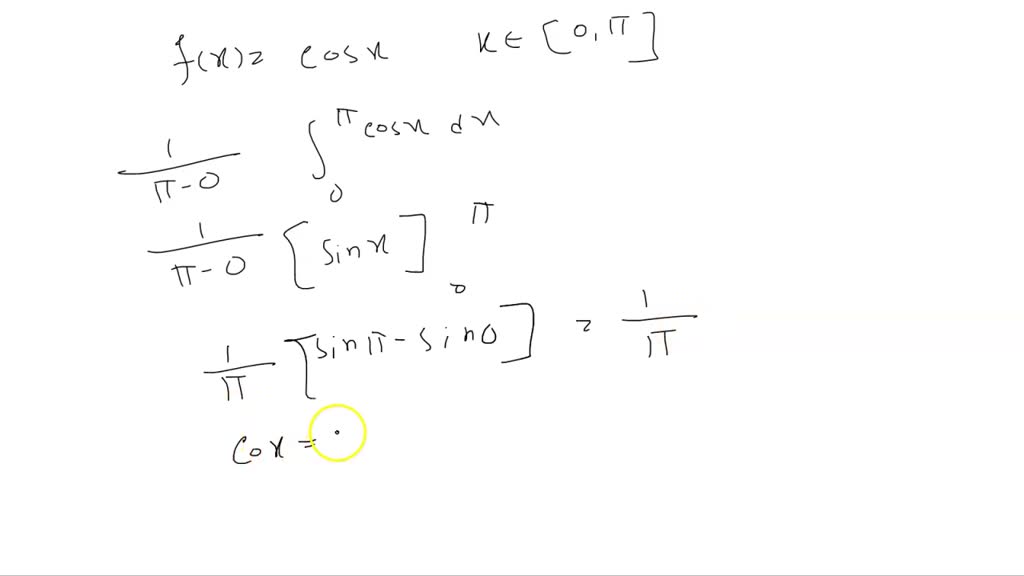 f(x)= cosx x∈ [0,π]
1/π-0 ∫₀^π cosx dx
1/π-0 [sinx]₀^π
1/π [sinπ-sin0] = 1/π
Cox =